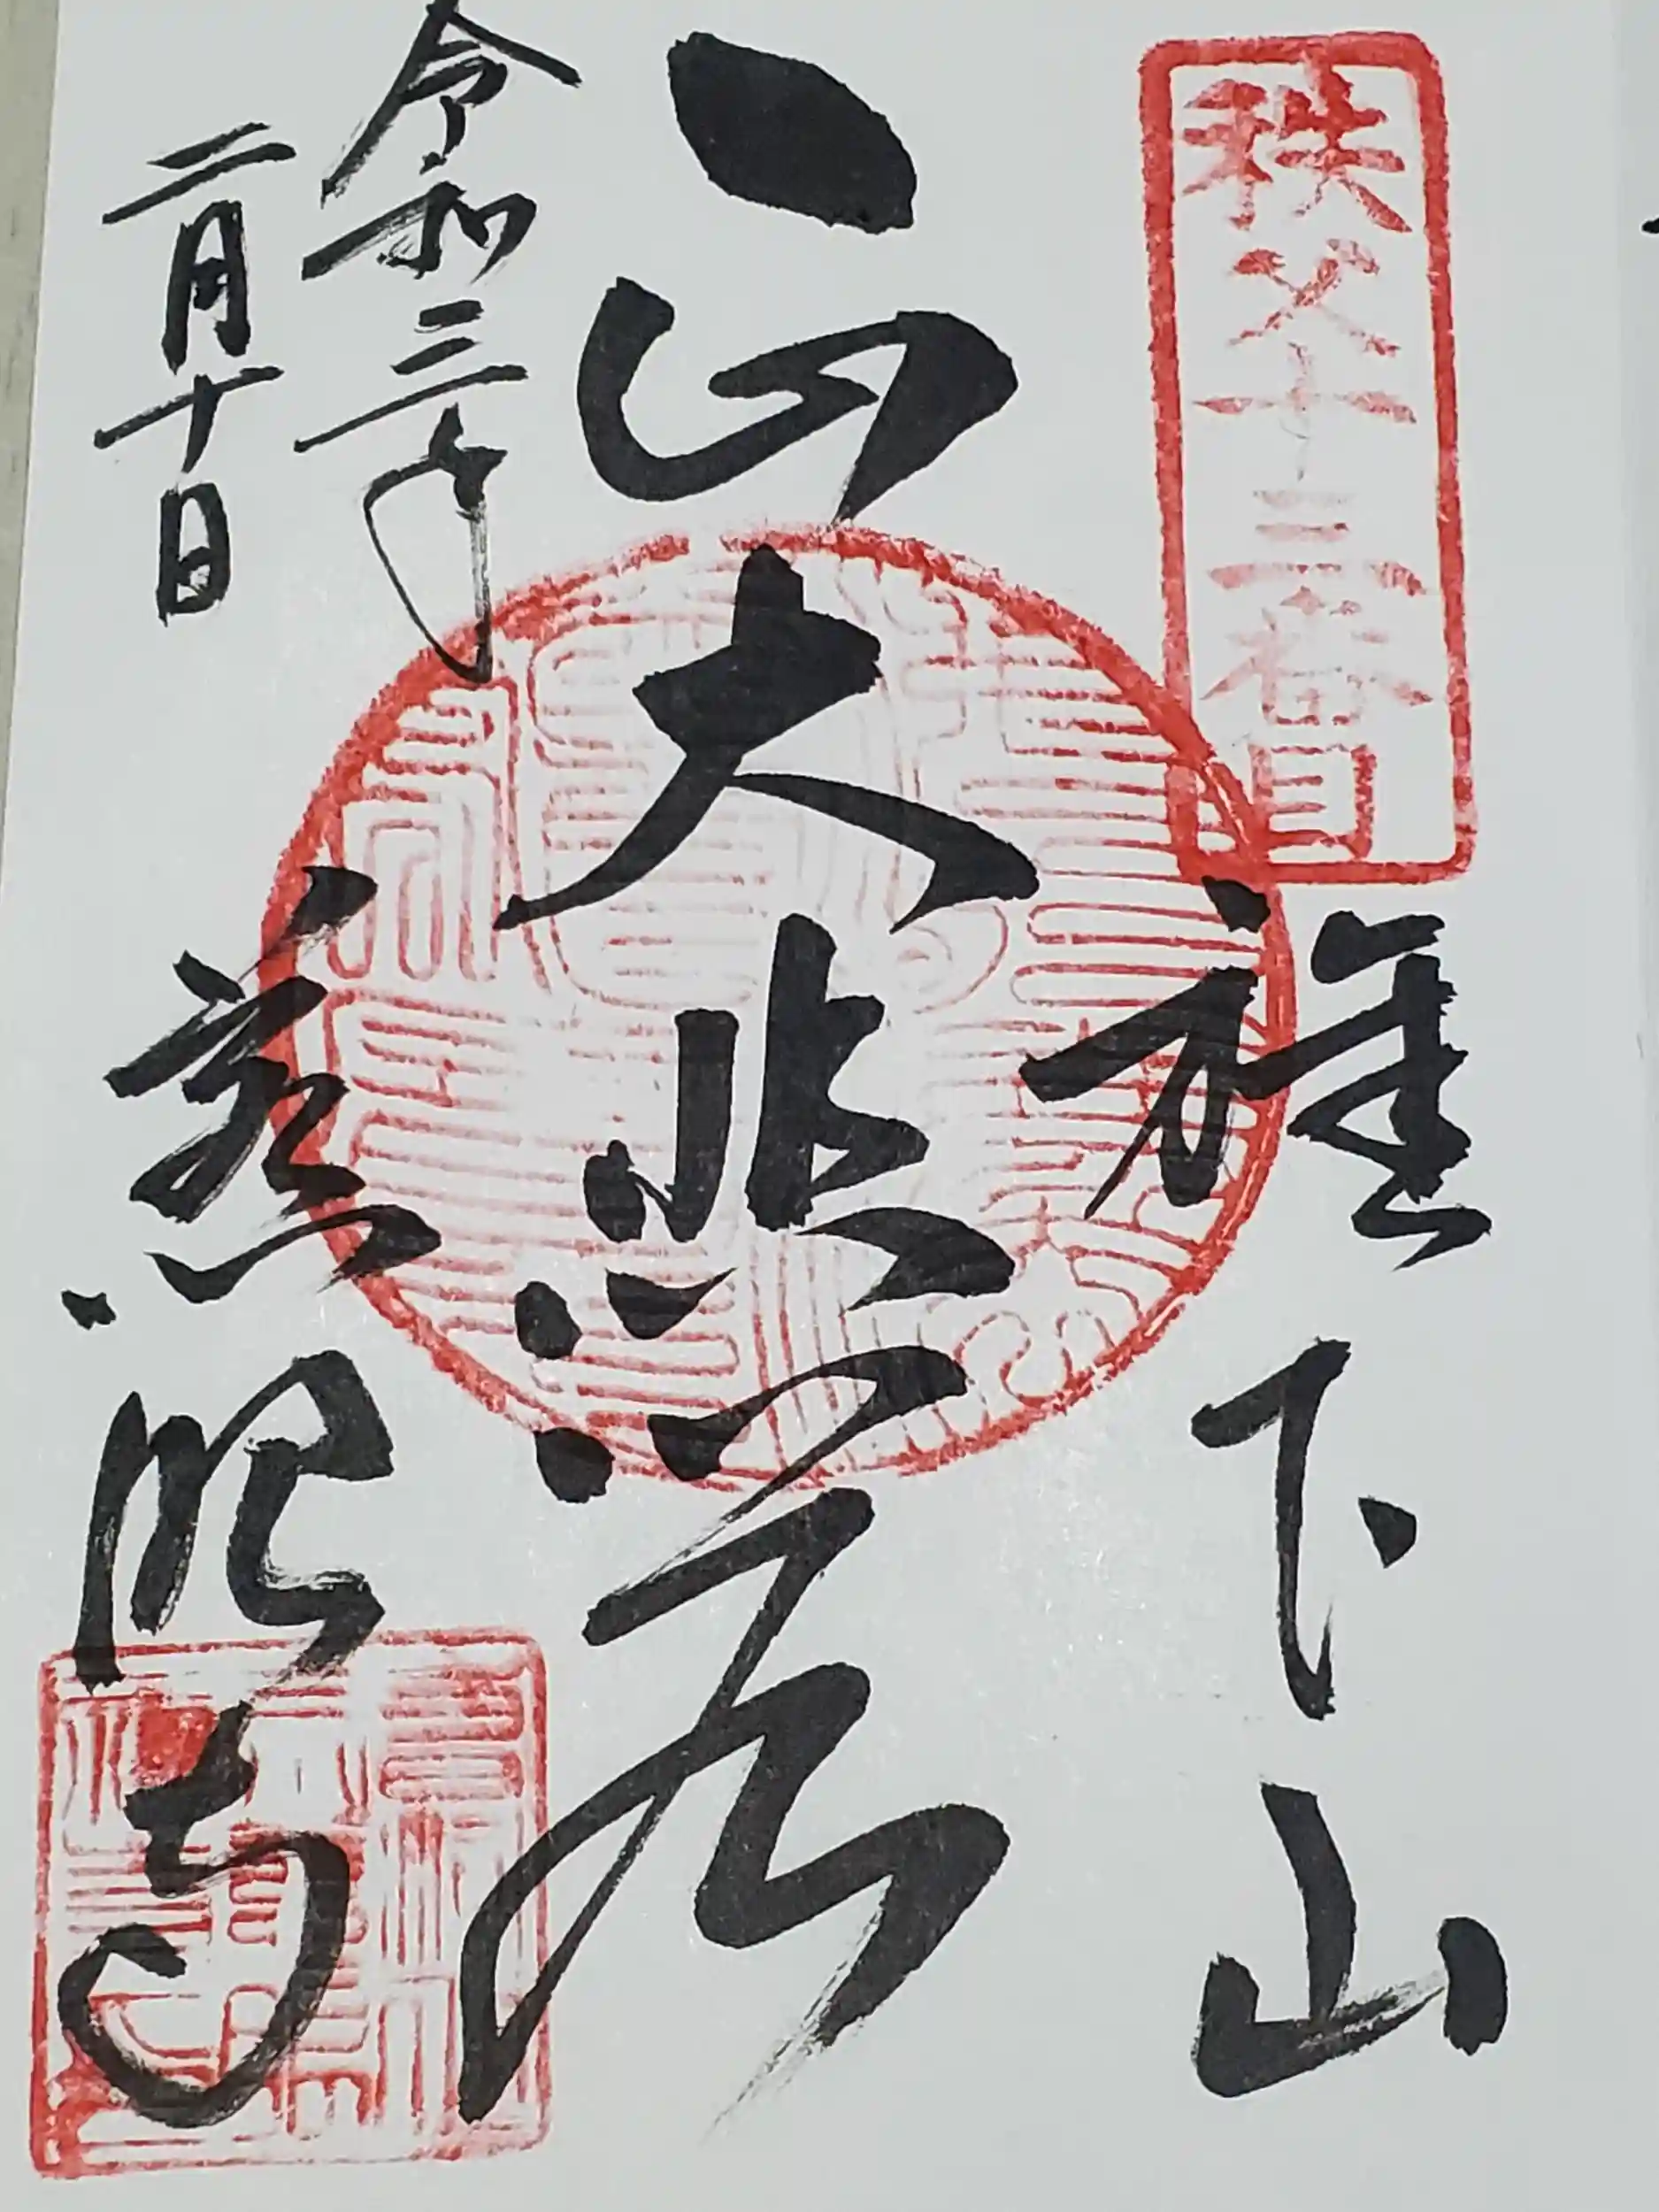 秩父十三番目
旗下山
大悲
令和三年
二月十日
慈眼寺